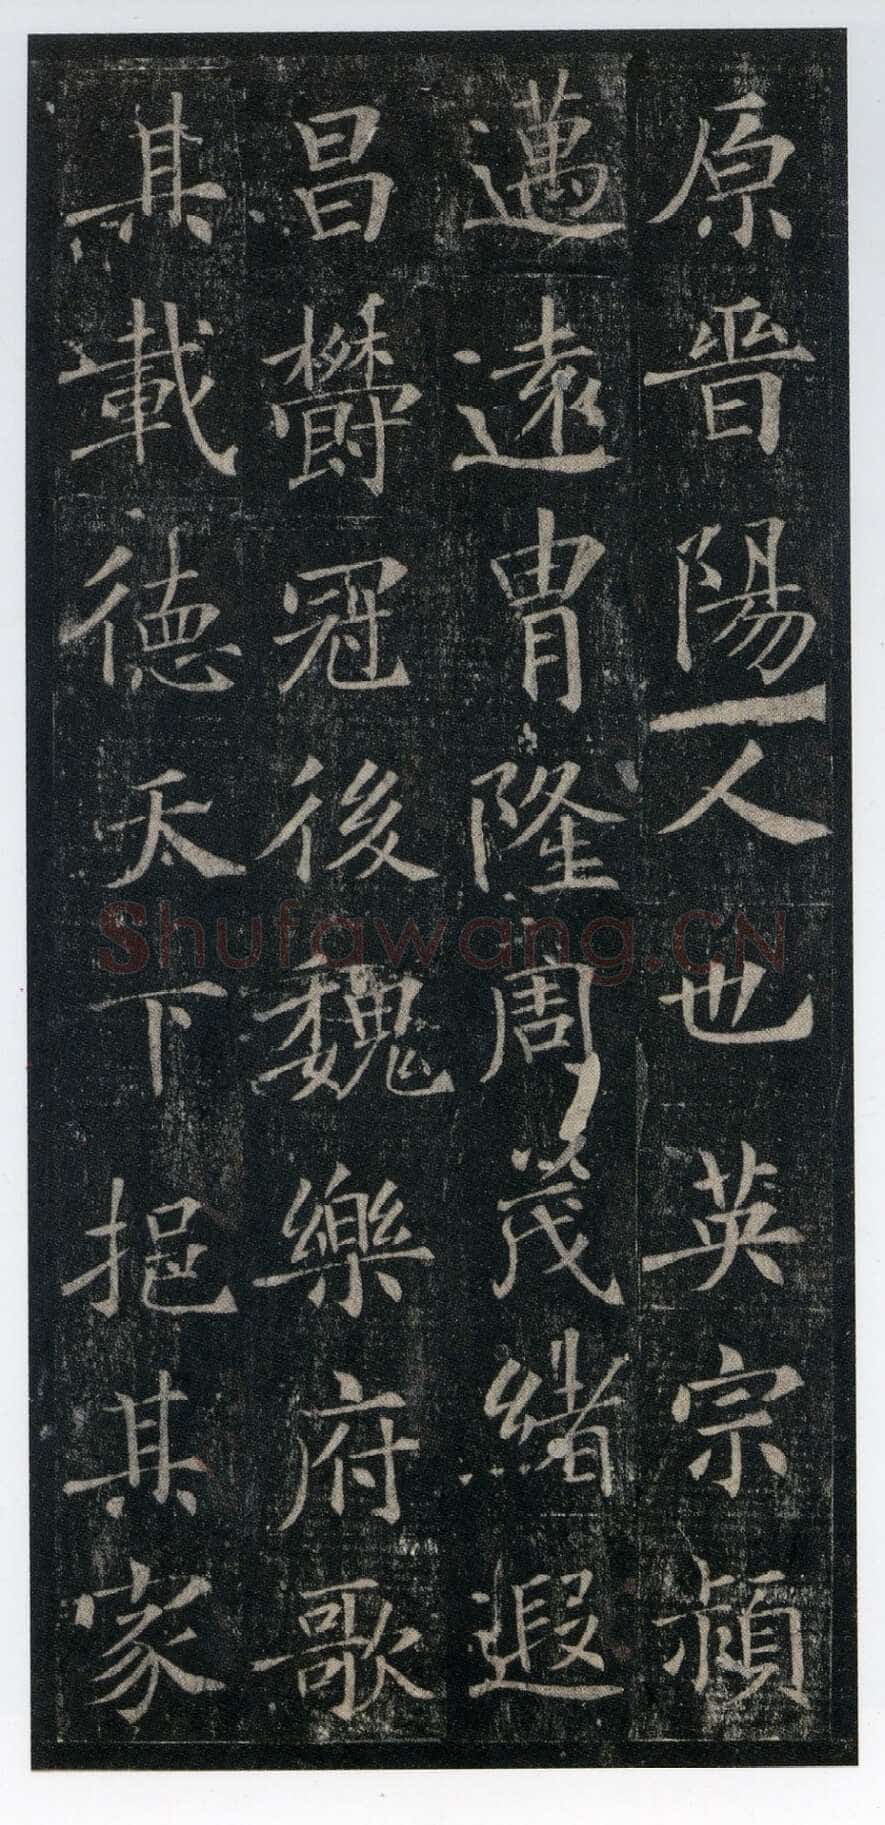 原晋陽人也英宗頴
邁遠胄隆周茂緒遐
昌欝冠後魏樂府歌
其載德天下挹其家
Shufawang.CN